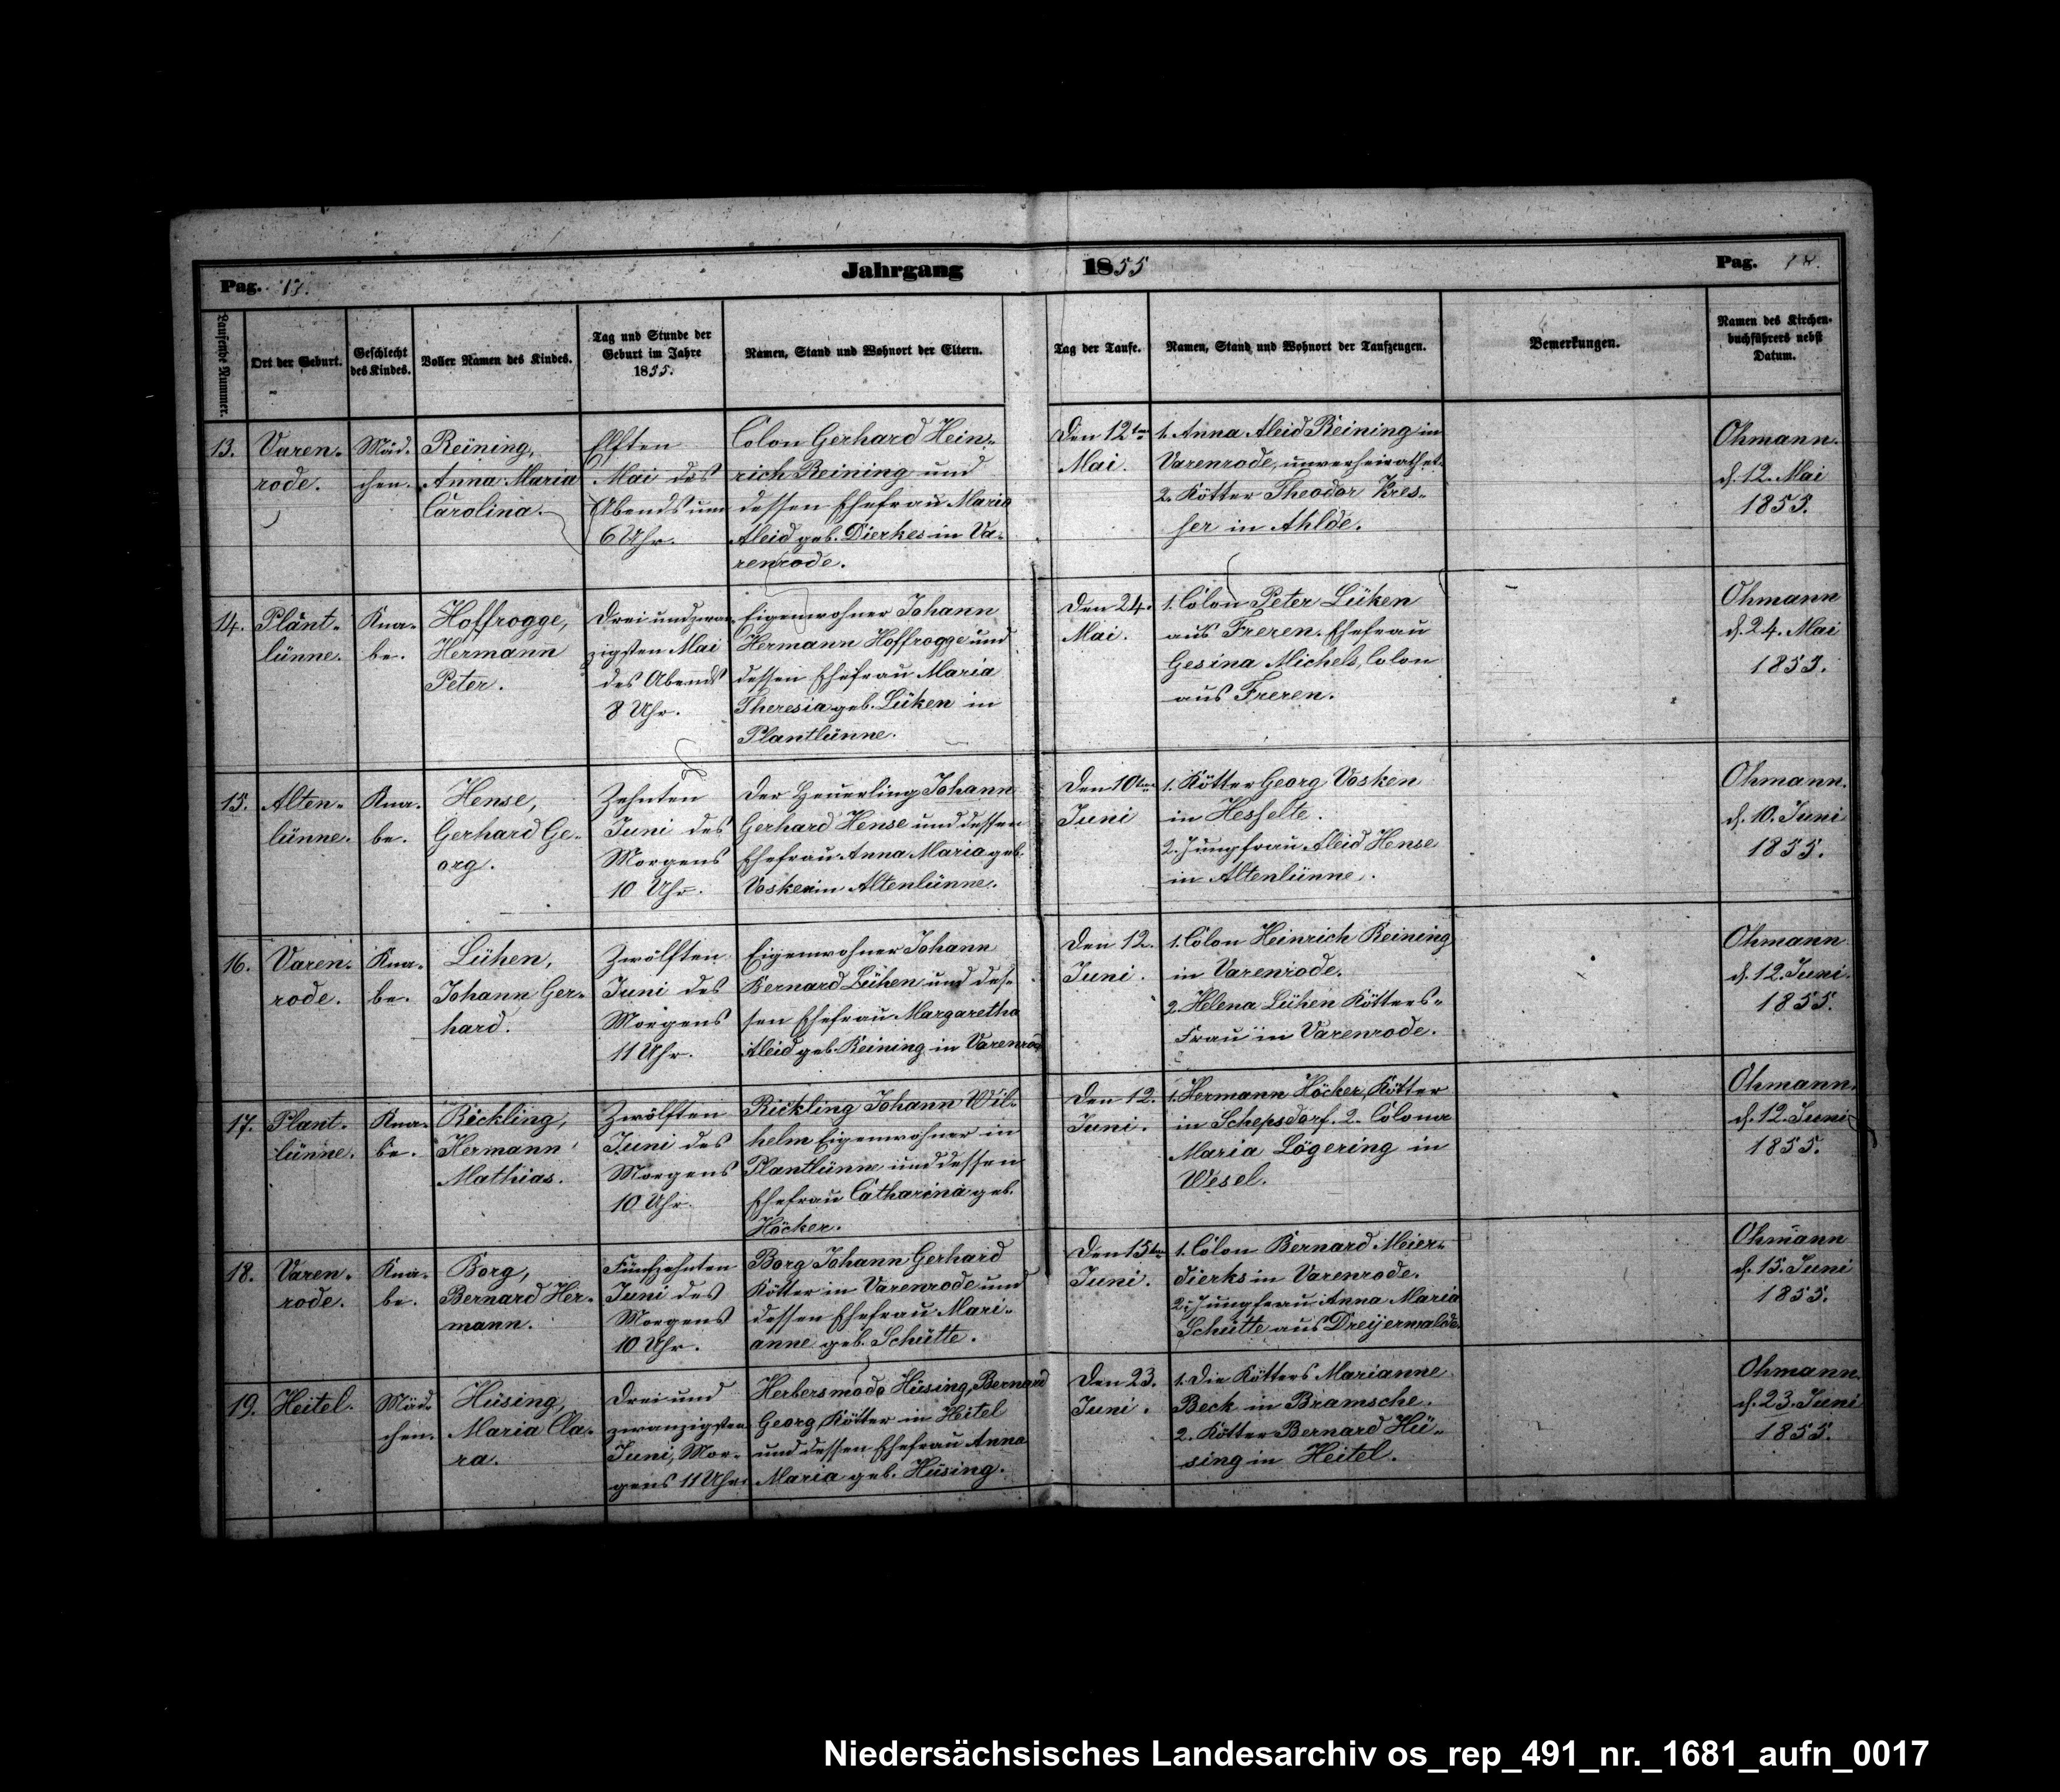 Pag. 13.
Jahrgang 1855
Pag. 14.
Laufende Nummer.
Ort der Geburt.
Geschlecht
des Kindes.
Voller Namen des Kindes.
Tag und Stunde der
Geburt im Jahre
1855.
Namen, Stand und Wohnort der Eltern.
Tag der Taufe.
Namen, Stand und Wohnort der Taufzeugen.
Bemerkungen.
Namen des Kirchen-
buchführers nebst
Datum.
13.
Varen-
rode.
Mäd-
chen.
Reining,
Anna Maria
Carolina.
Elften
Mai des
Abends um
6 Uhr.
Colon Gerhard Hein-
rich Reining und
dessen Ehefrau Maria
Aleid geb. Dierkes in Va-
renrode.
Den 12ten
Mai.
1. Anna Aleid Reining in
Varenrode, unverheirathet.
2. Kötter Theodor Kres-
ser in Ahlde.
Ohmann.
d. 12. Mai
1855.
14.
Plant-
lünne.
Kna-
be.
Hoffrogge,
Hermann
Peter.
Drei und zwan-
zigsten Mai
des Abends
8 Uhr.
Eigenwohner Johann
Hermann Hoffrogge und
dessen Ehefrau Maria
Theresia geb. Lüken in
Plantlünne.
Den 24.
Mai.
1. Colon Peter Lüken
aus Freren. Ehefrau
Gesina Michels, Colon
aus Freren.
Ohmann
d. 24. Mai
1855.
15.
Alten-
lünne.
Kna-
be.
Hense,
Gerhard Ge-
org.
Zehnten
Juni des
Morgens
10 Uhr.
Der Heuerling Johann
Gerhard Hense und dessen
Ehefrau Anna Maria geb.
Vosken in Altenlünne.
Den 10ten
Juni
1. Kötter Georg Vosken
in Hesselte.
2. Jungfrau Aleid Hense
in Altenlünne.
Ohmann.
d. 10. Juni
1855.
16.
Varen-
rode.
Kna-
be.
Lühen,
Johann Ger-
hard.
Zwölften
Juni des
Morgens
11 Uhr.
Eigenwohner Johann
Bernard Lühen und des-
sen Ehefrau Margaretha
Aleid geb. Reining in Varenrode
Den 12.
Juni.
1. Colon Heinrich Reining
in Varenrode.
2. Helena Lühen Kötters-
Frau in Varenrode.
Ohmann
d. 12. Juni.
1855.
17.
Plant-
lünne.
Kna-
be.
Rickling,
Hermann
Mathias.
Zwölften
Juni des
Morgens
10 Uhr.
Rickling Johann Wil-
helm Eigenwohner in
Plantlünne und dessen
Ehefrau Catharina geb.
Höcker.
Den 12.
Juni.
1. Hermann Höcker, Kötter
in Schepsdorf. 2. Colona
Maria Lögering in
Wesel.
Ohmann.
d. 12. Juni
1855.
18.
Varen-
rode.
Kna-
be.
Borg,
Bernard Her-
mann.
Fünfzehnten
Juni des
Morgens
10 Uhr.
Borg Johann Gerhard
Kötter in Varenrode und
dessen Ehefrau Mari-
anne geb. Schütte.
Den 15ten
Juni.
1. Colon Bernard Meier-
dierks in Varenrode.
2. Jungfrau Anna Maria
Schütte aus Dreijerwalde.
Ohmann
d. 15. Juni
1855.
19.
Heitel.
Mäd-
chen.
Hüsing,
Maria Cla-
ra.
Drei und
zwanzigsten
Juni, Mor-
gens 11 Uhr.
Herbers modo Hüsing, Bernard
Georg, Kötter in Heitel
und dessen Ehefrau Anna
Maria geb. Hüsing.
Den 23.
Juni.
1. Die Kötters Marianne
Beck in Bramsche.
2. Kötter Bernard Hü-
sing in Heitel.
Ohmann.
d. 23. Juni
1855.
Niedersächsisches Landesarchiv os_rep_491_nr._1681_aufn_0017